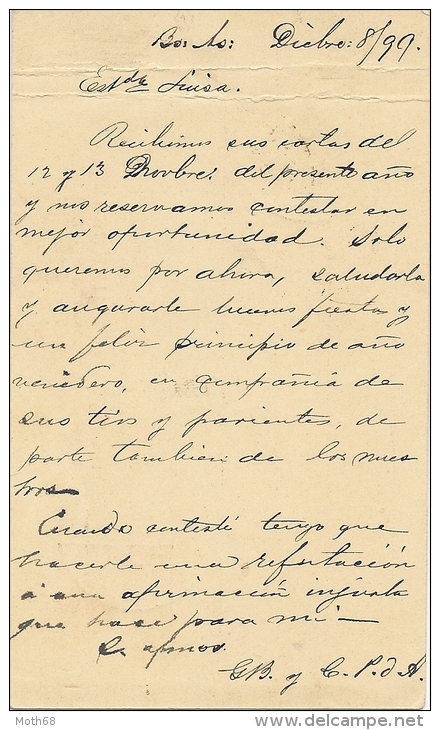 Bs: As: Dicbre: 8/99.
Estda Luisa.
Recibimos sus cartas del
12 y 13 Novbre: del presente año
y nos reservamos contestar en
mejor oportunidad. Solo
queremos por ahora, saludarla
y augurarle buenas fiestas y
un feliz principio de año
venidero, en compañia de
sus tios y parientes, de
parte tambien de los nues
tros—
Cuando contesté tengo que
hacerle una refutación
á una afirmación injusta
que hace para mi —
afmos.
GB. y C. P. d A.
Moth68